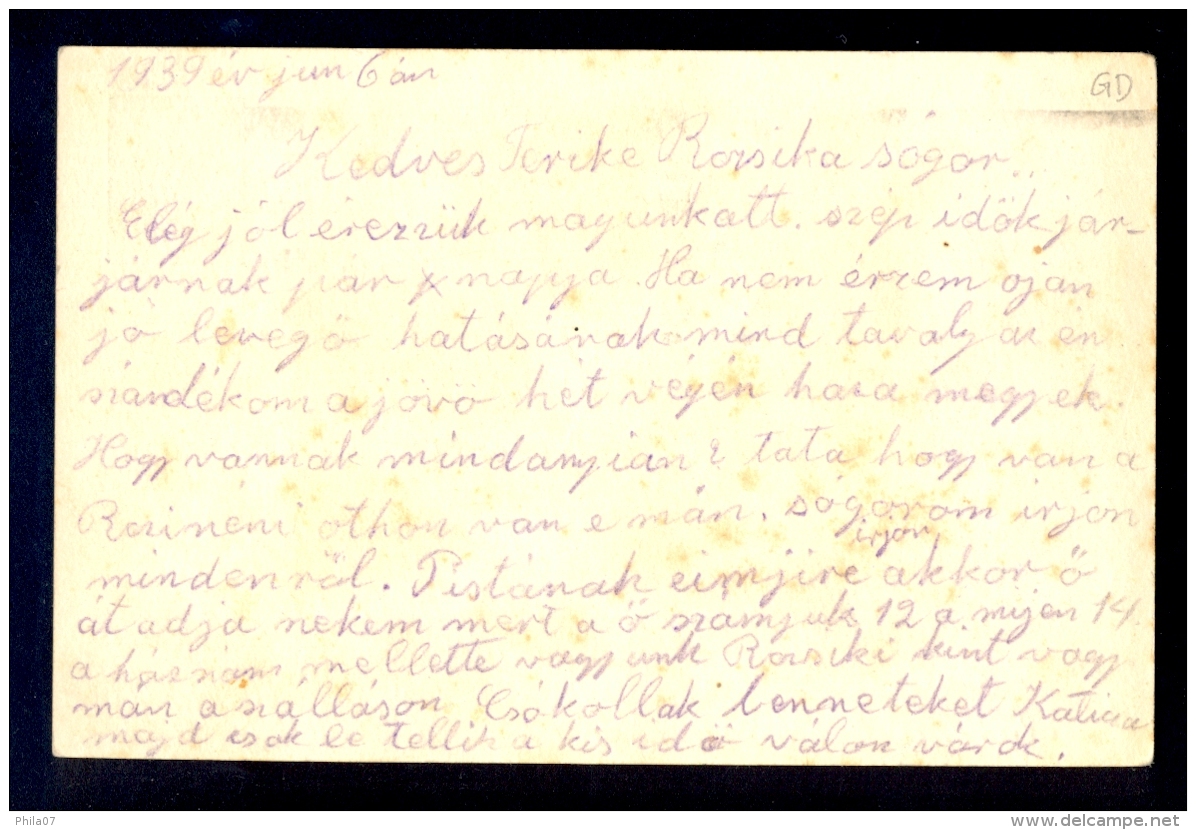 1939 év jun 6 án
GD
Kedves Terike Rozsika sógor..
Elég jól érezzük magunkatt. szép idők jár-
járnak pár x napja. Ha nem érzem ojan
jó levegő hatásának mind tavaly az én
szandékom a jövő hét végén haza megyek.
Hogy vannak mindanyian? tata hogy van a
Rozineni othon van e mán. sógorom irjon
irjon
mindenröl. Pistának cimjire akkor ő
át adja nekem mert a ő szamjuk 12 a mijen 14.
a házszám mellette vagyunk Rozsiki kint vagy
mán a szálláson Csókollak benneteket Katica
majd csak le tellik a kis idö válok várok.
Phila07
www.delcampe.net